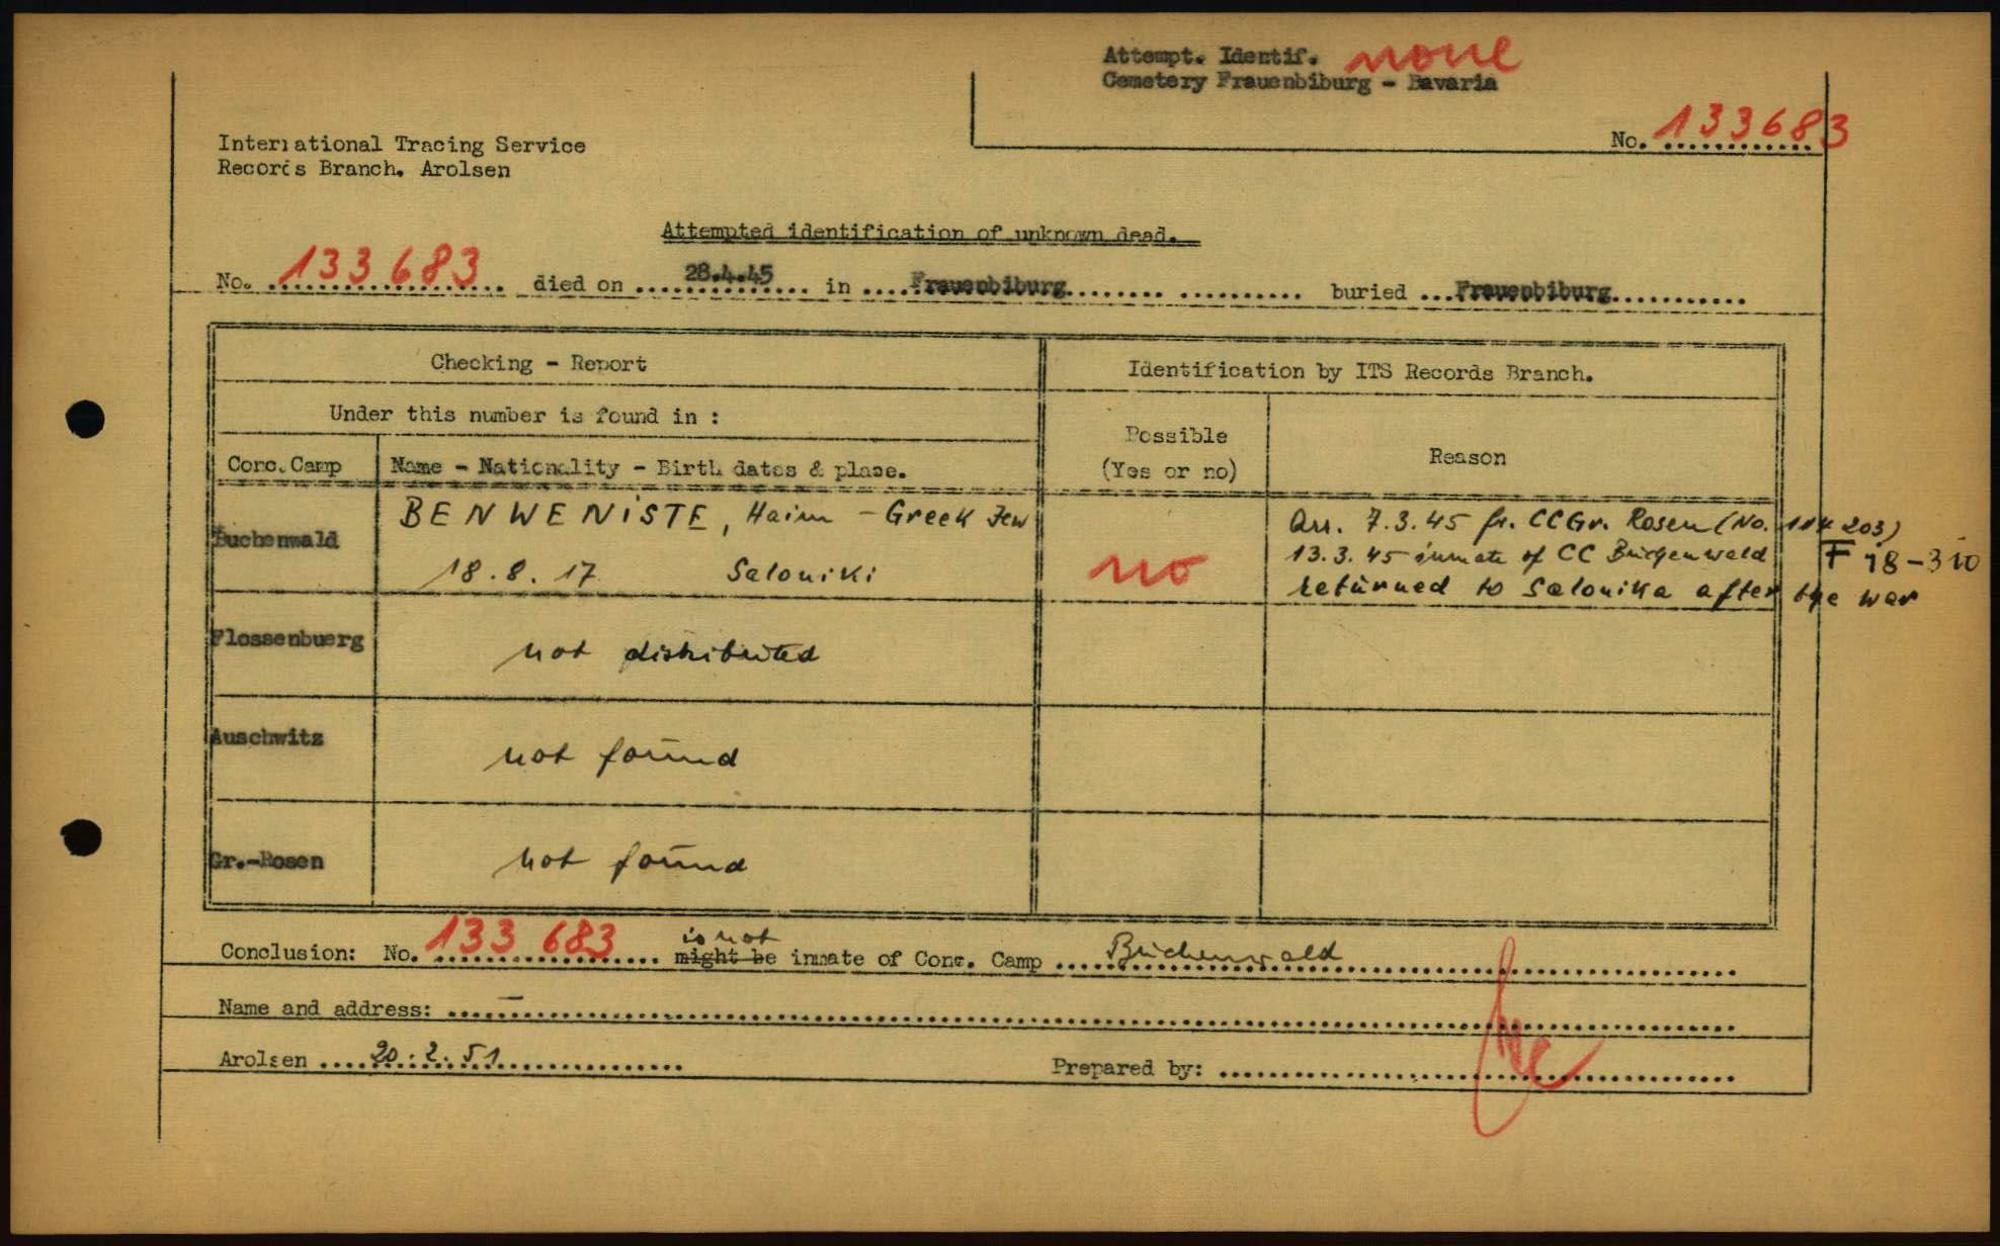 Attempt. Identif. none
Cemetery Frauenbiburg - Bavaria
No. 133683
International Tracing Service
Records Branch. Arolsen
Attempted identification of unknown dead.
No. 133683 died on 28.4.45 in Frauenbiburg buried Frauenbiburg
Checking - Report
Identification by ITS Records Branch.
Under this number is found in :
Possible
(Yes or no)
Reason
Conc. Camp
Name - Nationality - Birth dates & place.
Buchenwald
BENWENISTE, Haim - Greek Jew
18.8.17 Saloniki
no
Arr. 7.3.45 fr. CC Gr. Rosen (No. 114203)
13.3.45 inmate of CC Buchenwald F 18-310
returned to Salonika after the war
Flossenbuerg
not distributed
Auschwitz
not found
Gr.-Rosen
not found
is not
Conclusion: No. 133683 might be inmate of Conc. Camp Buchenwald
Name and address: —
Arolsen 20.2.51
Prepared by: